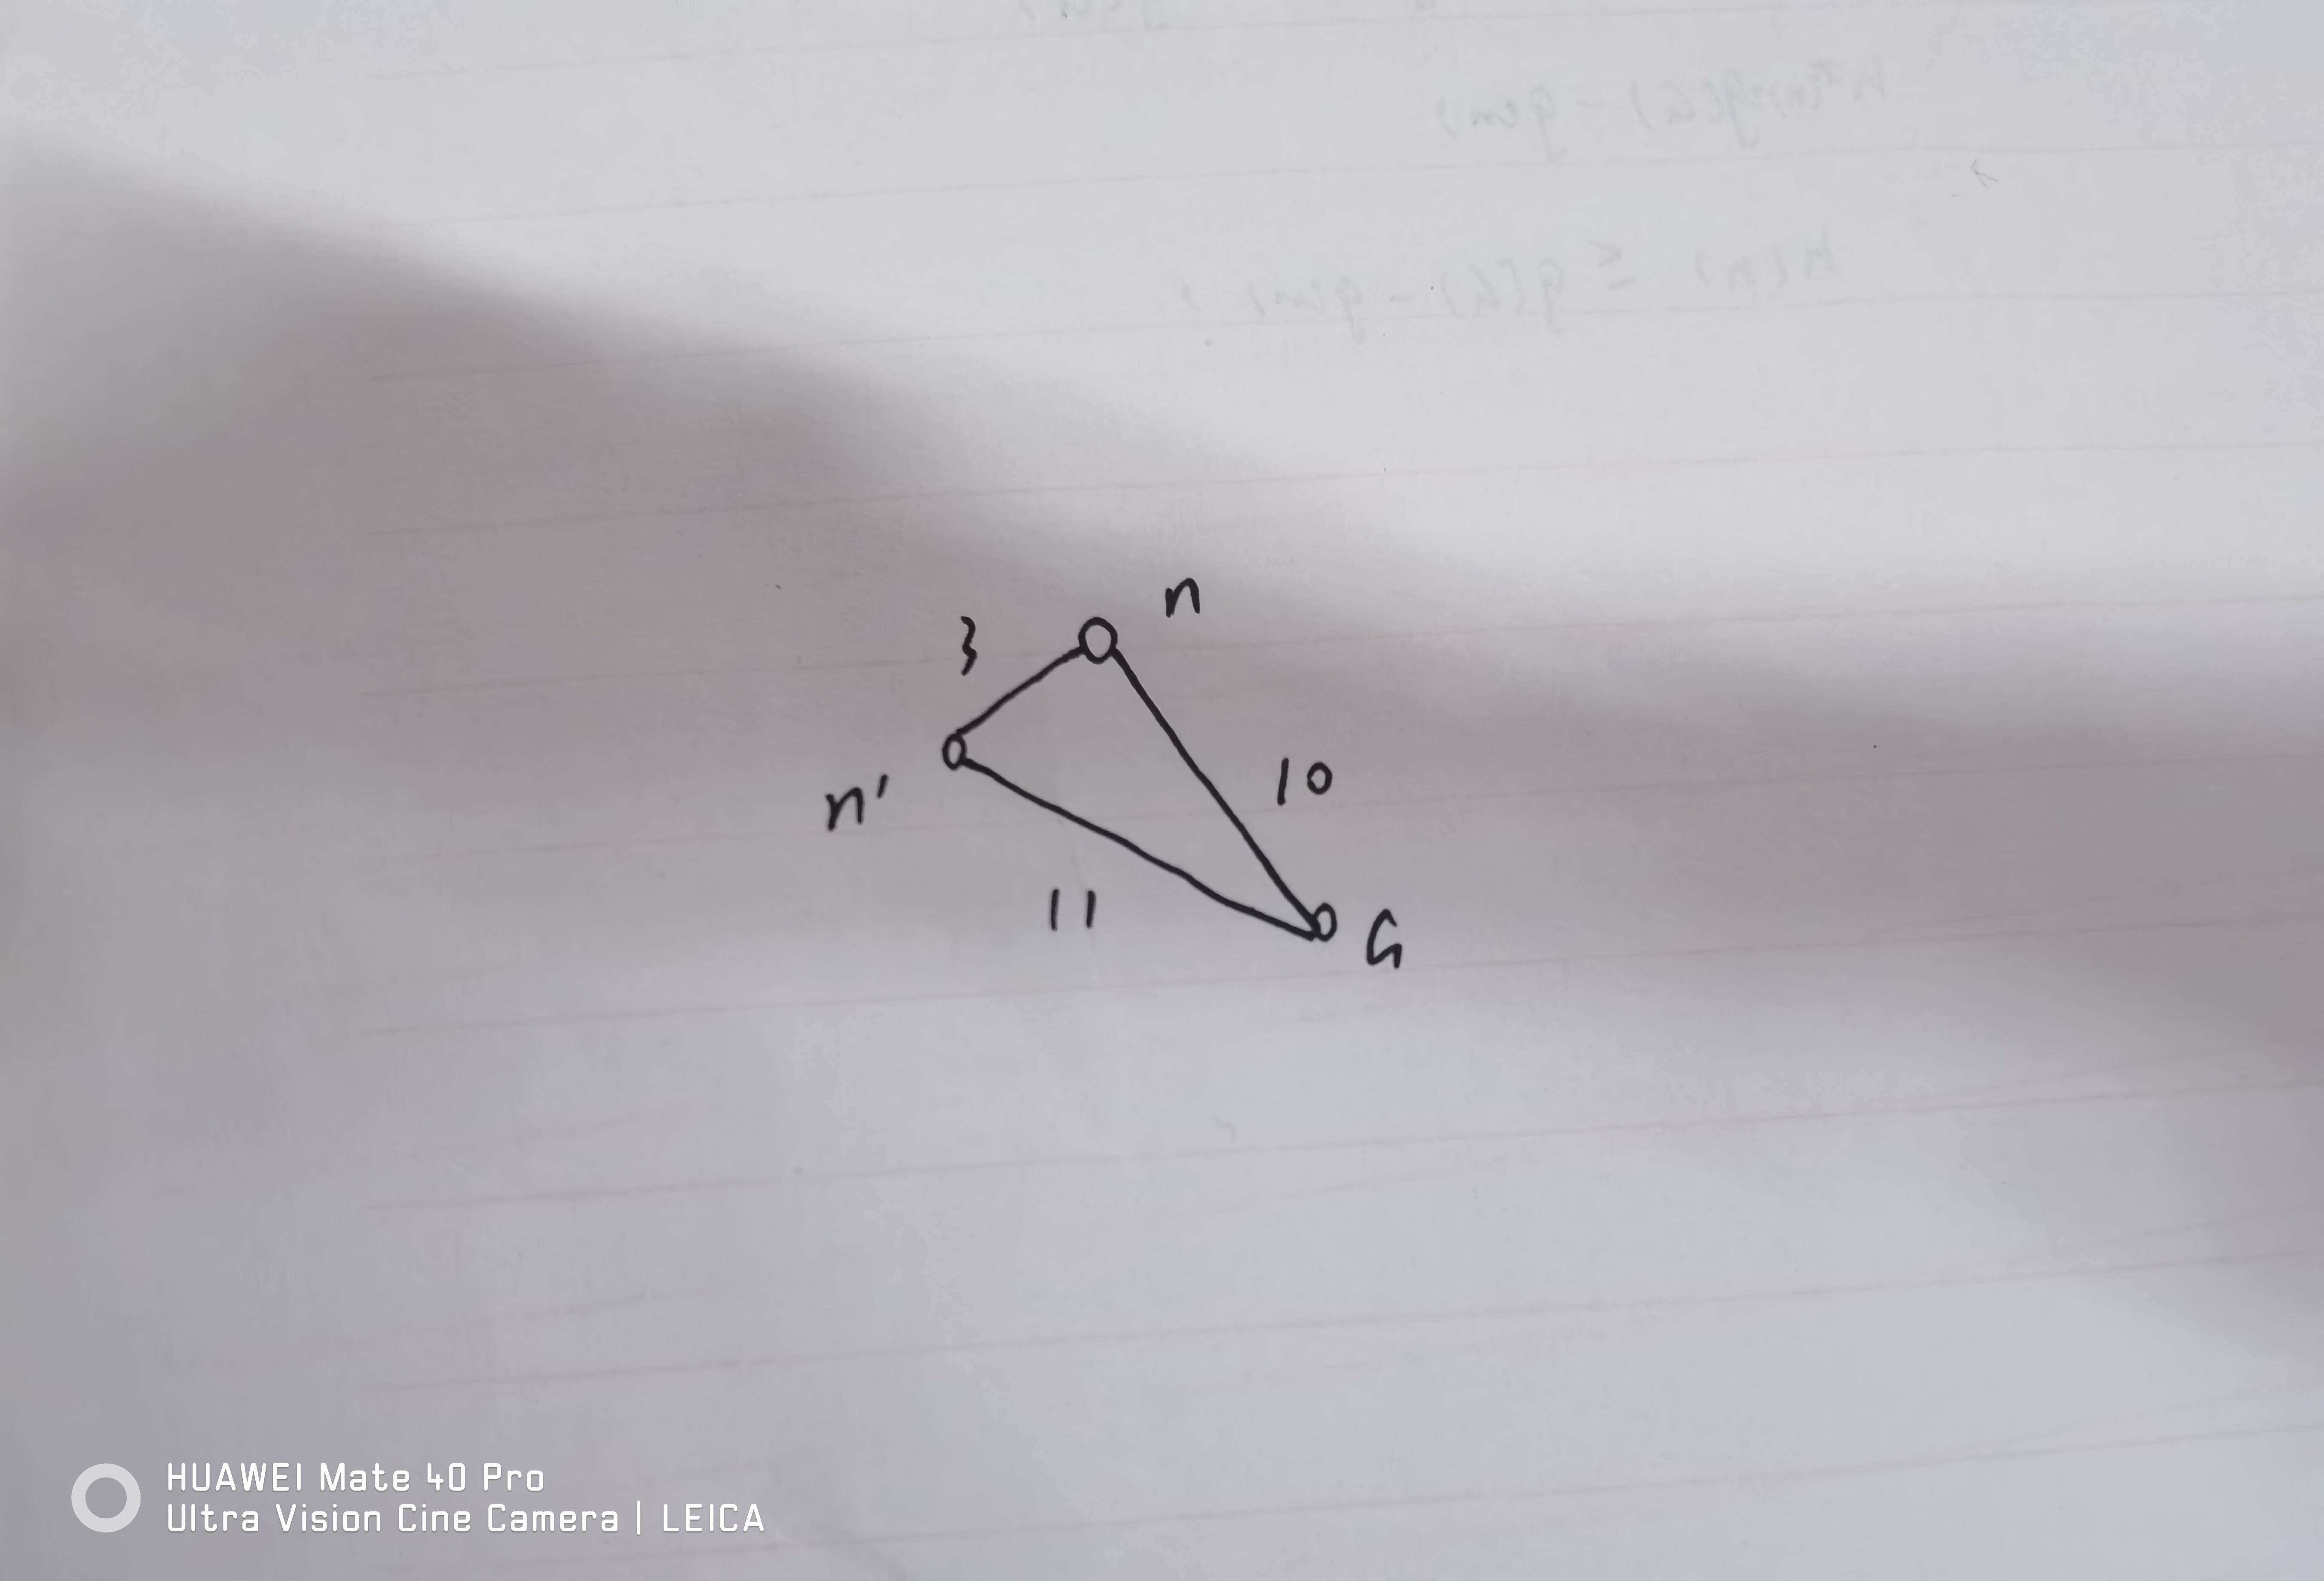 n
3
10
n'
11
G
HUAWEI Mate 40 Pro
Ultra Vision Cine Camera | LEICA